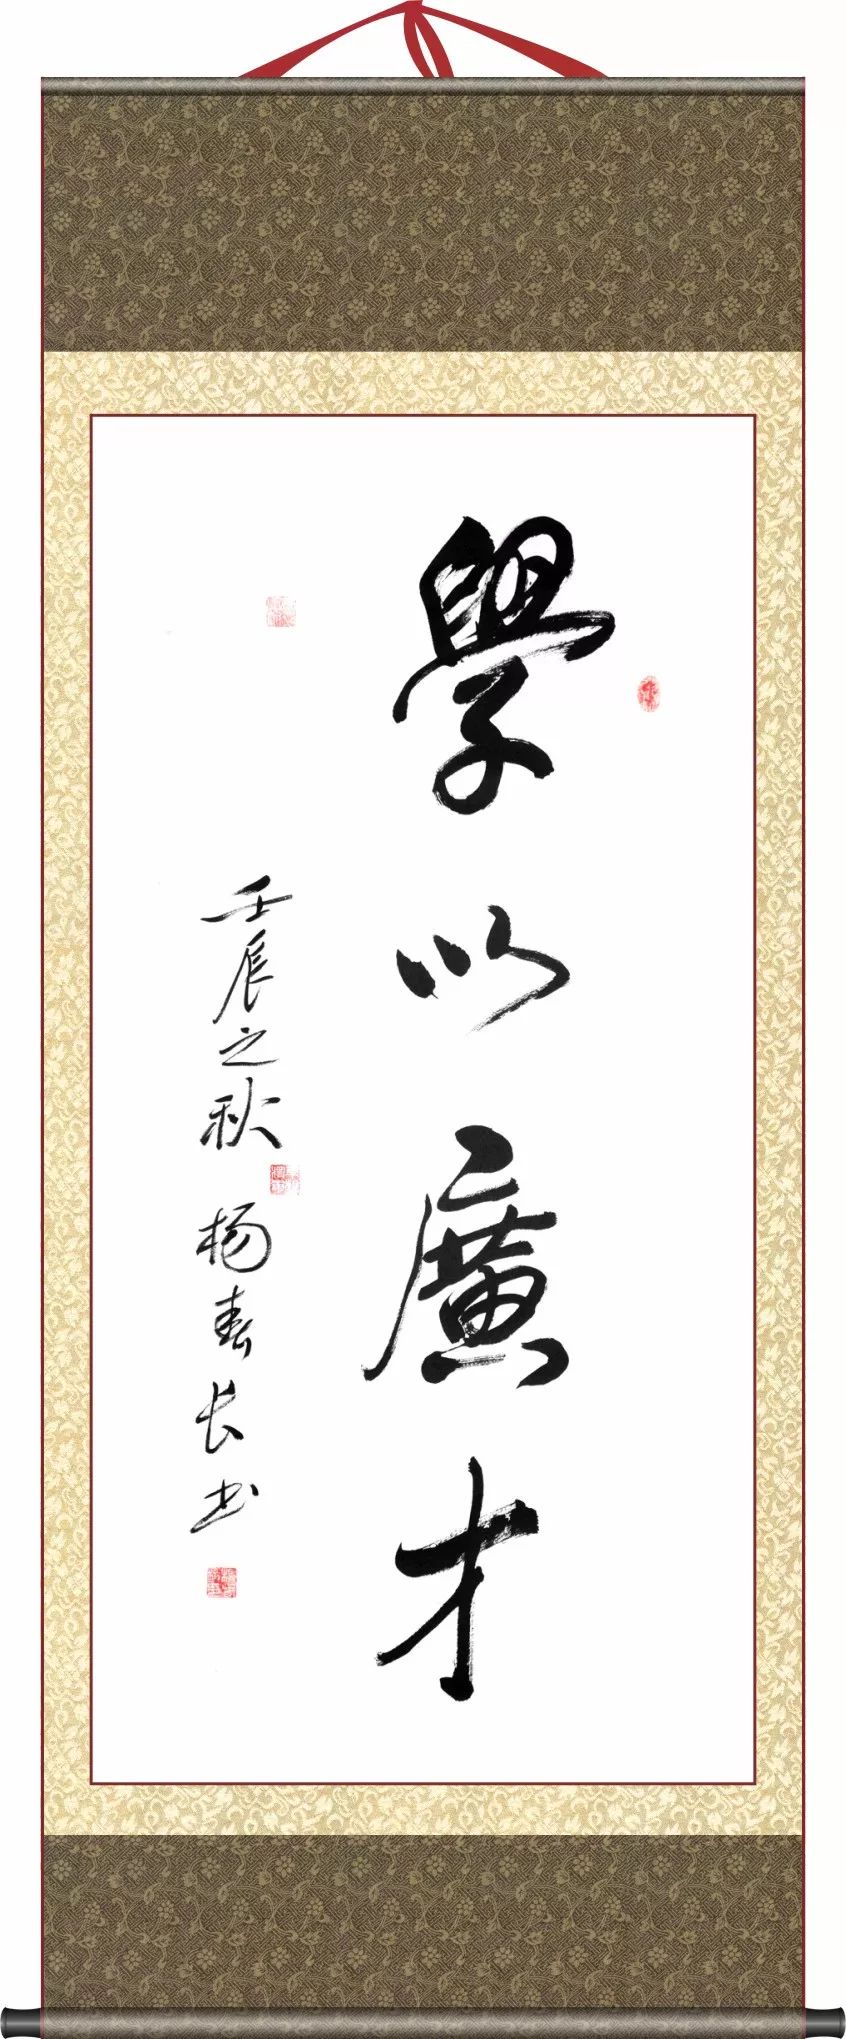 學以廣才
壬辰之秋 杨春长书